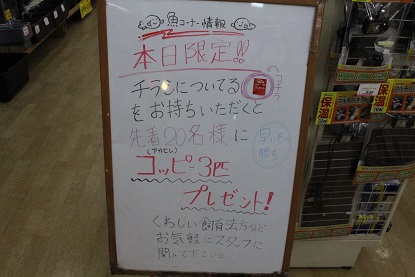 魚コーナー情報
本日限定!!
チラシについてる
のコチラ
をお持ちいただくと
先着20名様に
早いもの勝ち
(アカヒレ)
コッピー3匹
プレゼント!
くわしい飼育法方など
お気軽にスタッフに
聞いて下さい。
保温
保温